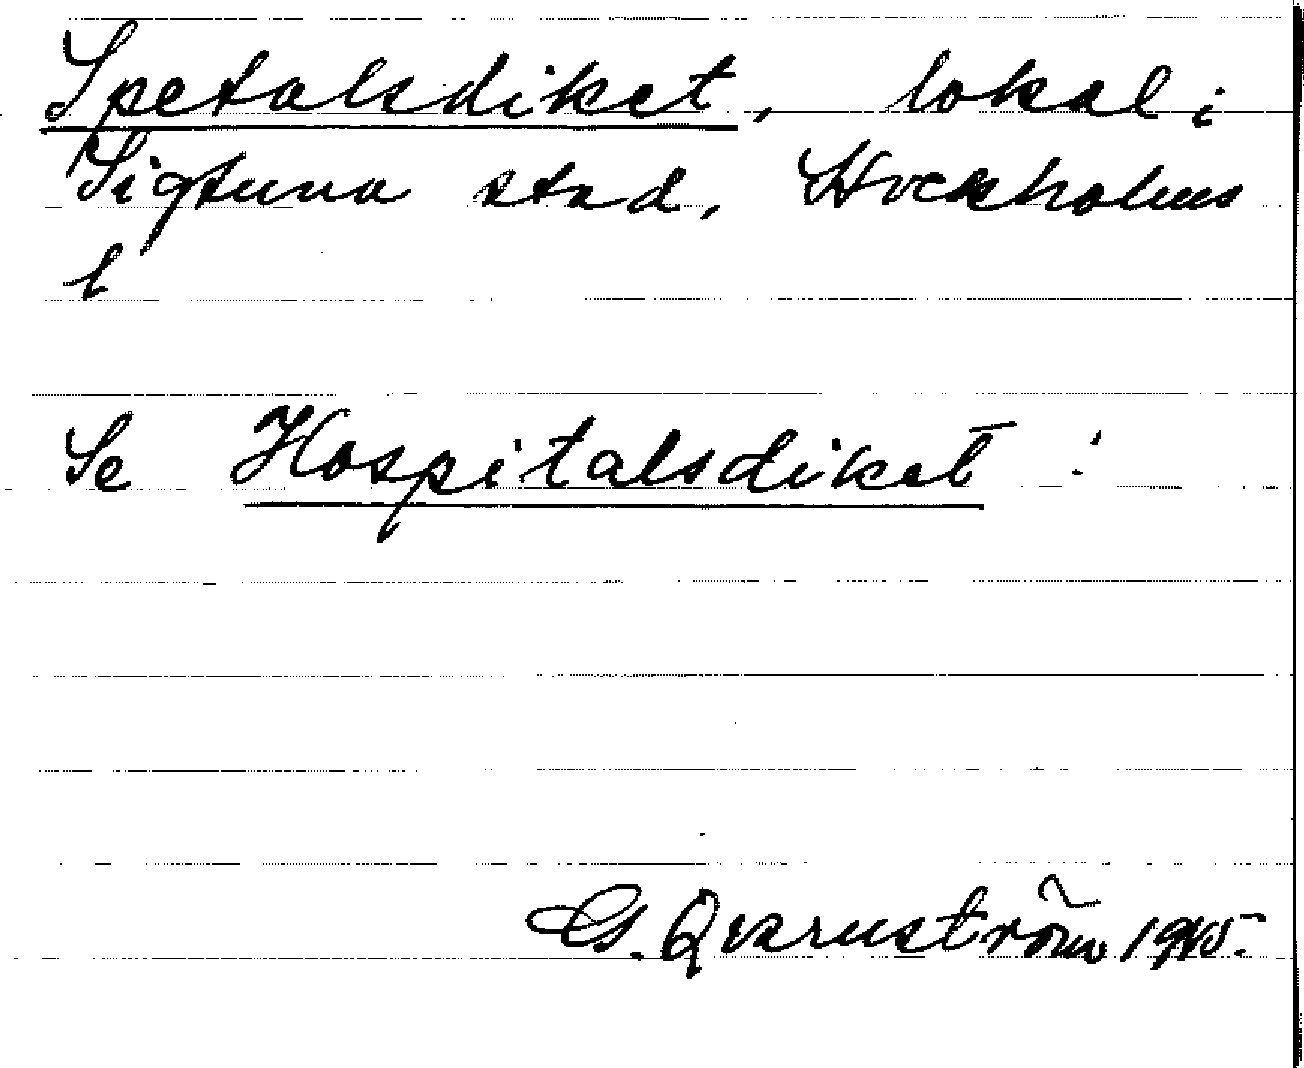 Spetalsdiket, lokal i
Sigtuna stad, Stockholms
l
Se Hospitalsdiket !
G. Qvarnström 1945.